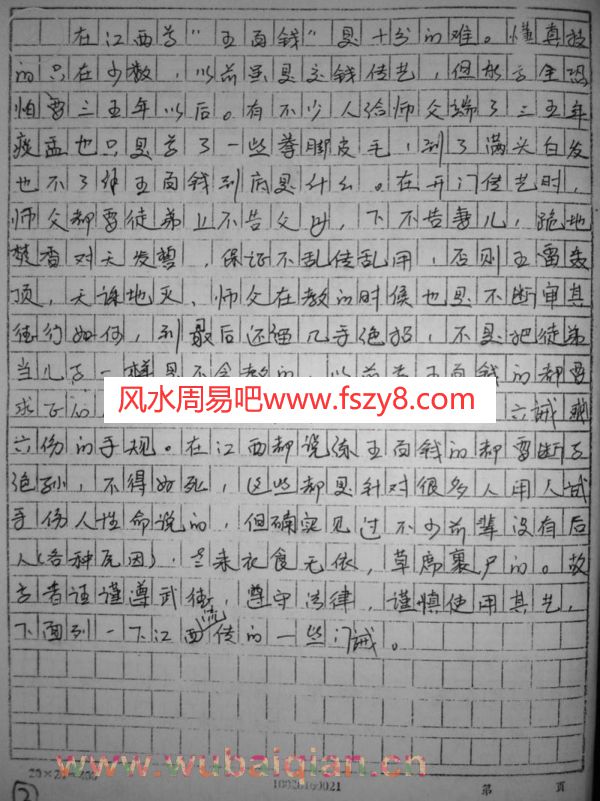 在江西学“五百钱”是十分的难。懂真技
的只在少数，以前虽是交钱传艺，但家言全恐
怕要三五年以后。有不少人给师父端了三五年
痰盂也只是学了一些拳脚皮毛，到了满头白发
也不了解五百钱到底是什么。在开门传艺时，
师父都要徒弟上不告父母，下不告妻儿，跪地
焚香对天发誓，保证不乱传乱用，否则五雷轰
顶，天诛地灭、师父在教的时候也是不断审其
德行如何，到最后还留几手绝招，不是把徒弟
当儿子一样是不会教的，以前学五百钱的都要
求正的 六诫
六伤的手规。在江西都说练五百钱的都要断子
绝孙，不得好死，这些都是针对很多人用人试
手伤人性命说的，但确实见过不少前辈没有后
人（各种死因），老来衣食无依，草席裹尸的。故
古者谨谨遵武德，遵守法律，谨慎使用其艺，
下面列一下江西流传的一些门诫。
风水周易吧www.fszy8.com
www.wubaiqian.cn
10020160021
第 页